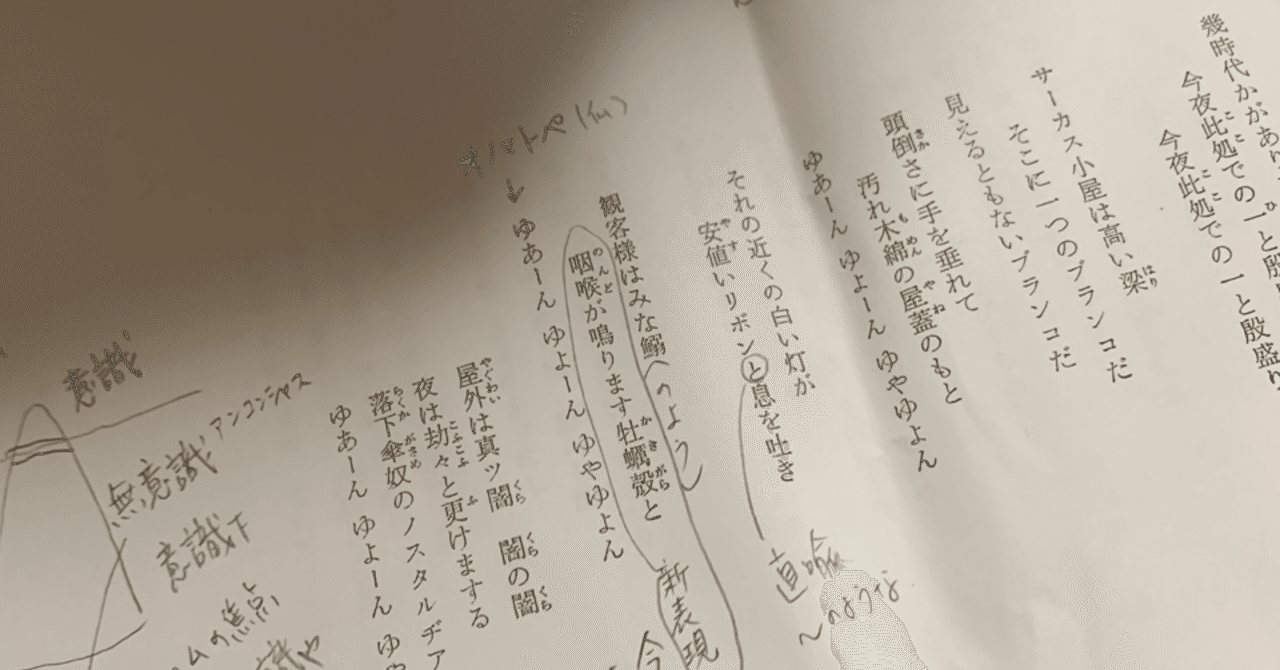 幾時代かがあり
今夜此処での一と殷盛り
今夜此処での一と殷
サーカス小屋は高い梁
そこに一つのブランコだ
見えるともないブランコだ
頭倒さに手を垂れて
汚れ木綿の屋蓋のもと
ゆあーん ゆよーん ゆやゆよん
それの近くの白い灯が
安値いリボンと息を吐き
直喩
〜のような
観客様はみな鰯
(のよう)
咽喉が鳴ります牡蠣殻と
新表現
オノマトペ(仏)
↓
ゆあーん ゆよーん ゆやゆよん
屋外は真ッ闇 闇の闇
夜は劫々と更けまする
落下傘奴のノスタルヂア
ゆあーん ゆよーん ゆや
今
意識
無意識 アンコンシャス
意識下
ムの焦点
識や